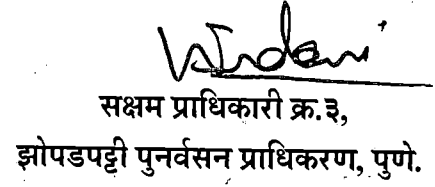 सक्षम प्राधिकारी क्र.३,
झोपडपट्टी पुनर्वसन प्राधिकरण, पुणे.